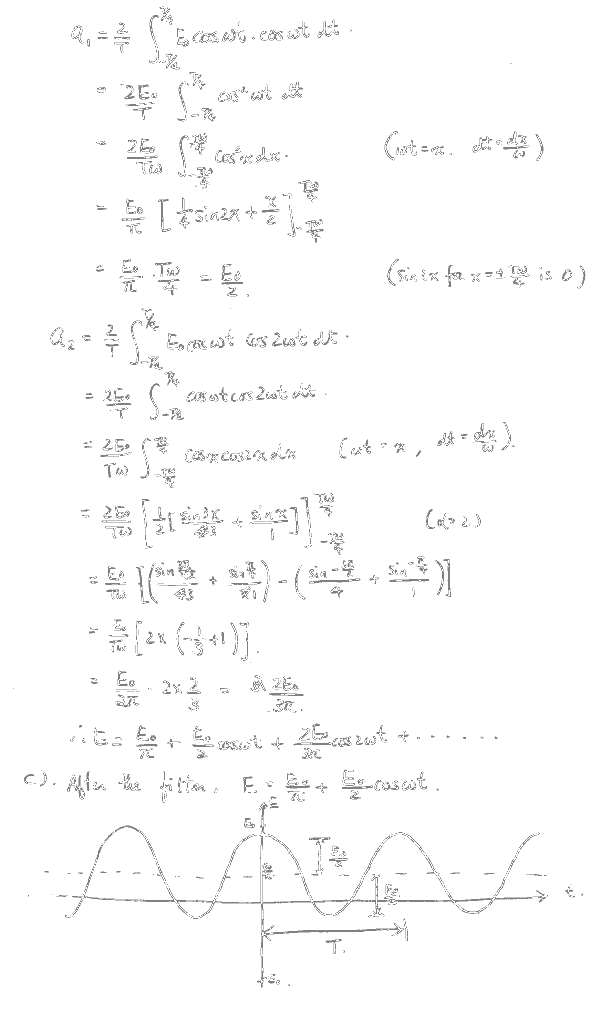 a₁ = 2/T ∫_{-T/4}^{T/4} E₀ cos ωt . cos ωt dt .
= 2E₀/T ∫_{-T/4}^{T/4} cos² ωt dt
= 2E₀/Tω ∫_{-Tω/4}^{Tω/4} cos² x dx . (ωt = x . dt = dx/ω)
= E₀/π [ 1/4 sin2x + x/2 ]_{-Tω/4}^{Tω/4}
= E₀/π . Tω/4 = E₀/2 . (sin 2x for x = ± Tω/4 is 0)
a₂ = 2/T ∫_{-T/4}^{T/4} E₀ cos ωt cos 2ωt dt .
= 2E₀/T ∫_{-T/4}^{T/4} cos ωt cos 2ωt dt .
= 2E₀/Tω ∫_{-Tω/4}^{Tω/4} cos x cos 2x dx (ωt = x , dt = dx/ω).
= 2E₀/Tω [ 1/2 [ sin3x/3 + sin x/1 ] ]_{-Tω/4}^{Tω/4} (a=2.)
= E₀/Tω [( sin /3 + sin /1 ) - ( sin - + sin - /1 )]
= E₀/Tω [ 2x (-1/3 + 1) ] .
= E₀/2π . 2x 2/3 = 2E₀/3π .
∴ E = E₀/π + E₀/2 cos ωt + 2E₀/3π cos 2ωt + . . . . . .
c). After the filter, E = E₀/π + E₀/2 cos ωt .
E
E₀
E₀/2
E₀/π
E₀/2
t .
T.
-E₀ .